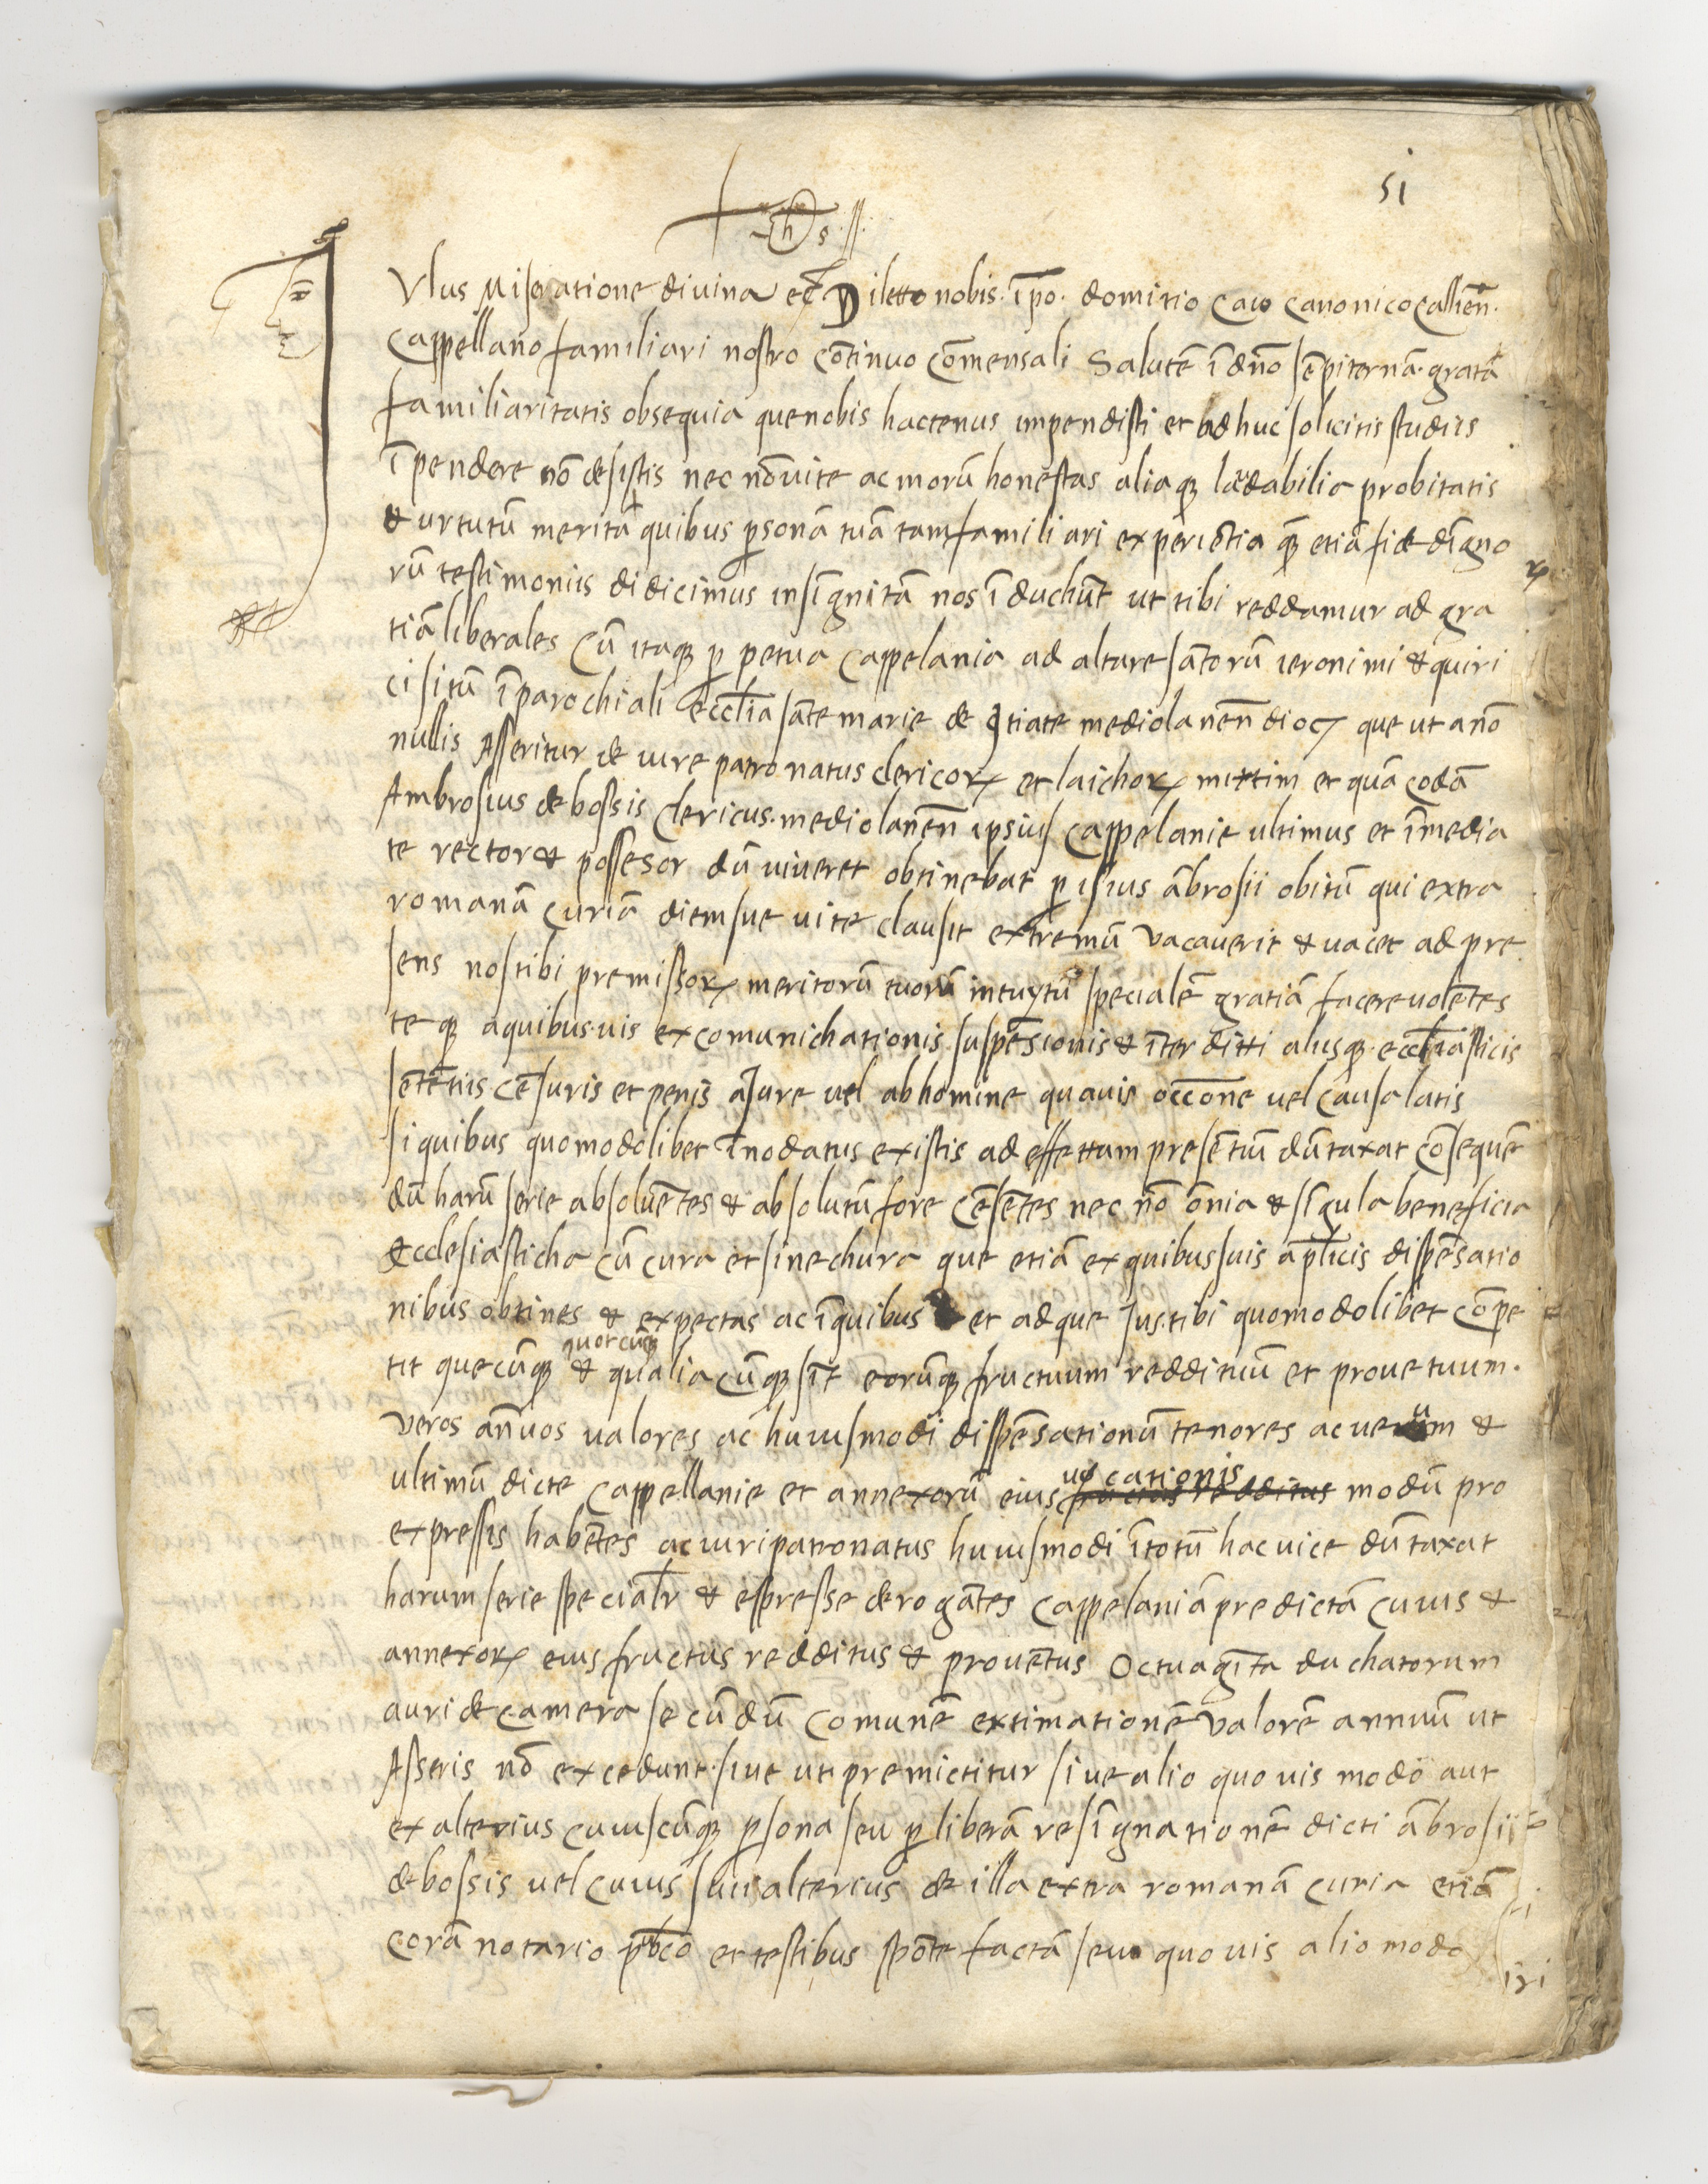 51
yhs
Iulus Miseratione divina etc Diletto nobis ĩ xpo domitio Cavo Canonico Callieñ.
Cappellano familiari nostro cõtinuo Cõmensali Salutẽ ĩ dño sẽpiternã. grata
familiaritatis obsequia que nobis hactenus impendisti et adhuc solicitis studiis
ĩpendere nõ desistis nec nõ vite ac morũ honestas aliaqꝫ laudabilia probitatis
& urtutũ merita quibus ꝑsonã tuã tam familiari experiẽtia qꝫ etiã fide dĩgno
rũ testimoniis didicimus insĩgnitã nos ĩduchũt ut tibi reddamur ad gra
tiã liberales Cũ itaqꝫ ꝑpetua Cappelania ad altare sãtorũ ieronimi & quiri
ci sitũ ĩ parochiali eccłia sãte marie de mediolanẽñ dioc̃ que ut a nõ
nullis Asseritur de iure patronatus clericoꝝ et laichoꝝ mixtim et quã codã
Ambrosius de bossis Clericus. mediolanẽñ ipsius Cappelanie ultimus et ĩmedia
te rector & possesor dũ viveret obtinebat ꝑ isius ãbrosii obitũ qui extra
romanã Curiã diem sue vite clausit extremũ vacaverit & vacet ad pre
sens nos tibi premissoꝝ meritorũ tuorũ intuytũ specialẽ gratiã facere volẽtes
teqꝫ a quibusvis excomunichationis suspẽsionis & ĩterditti aliisqꝫ eccłiasticis
sẽtẽtiis Cẽsuris et penis a Jure vel ab homine quavis occõne vel Causa latis
si quibus quomodolibet ĩnodatus existis ad effettum presẽtiũ dũtaxat cõsequẽ
dũ harũ serie absolvẽtes & absolutũ fore Cẽsẽtes nec nõ õnia & sĩgula beneficia
Ecclesiasticha cũ cura et sine chura que etiã ex quibussvis apłicis dispẽsatio
nibus obtines & expectas ac ĩ quibus et ad que Jus tibi quomodolibet cõpe
tit quecũqꝫ quotcũqꝫ & qualiacũqꝫ sĩt eorũqꝫ fructuum reddituũ et provetuum.
veros anñuos valores ac huiusmodi dispẽsationũ tenores ac verum &
ultimũ dicte Cappellanie et annexorũ eius fructus redditus vacationis modũ pro
expressis habẽtes ac iuripatronatus huiusmodi ĩ totũ hac vice dũtaxat
harum serie speciałr & espresse derogãtes Cappelaniã predictã Cuius &
annexoꝝ eius fructus redditus & provẽtus Octuagĩta duchatorum
auri de Camera secũdũ Comunẽ extimationẽ valorẽ annuũ ut
Asseris nõ excedunt. sive ut premictitur sive alio quovis modo aut
ex alterius cuiuscũqꝫ ꝑsona seu ꝑ liberã resĩgnationẽ dicti ãbrosii
de bossis vel Cuiussvis alterius de illa extra romanã curia etiã
Corã notario pubco et testibus spõte factã seu quovis alio modo